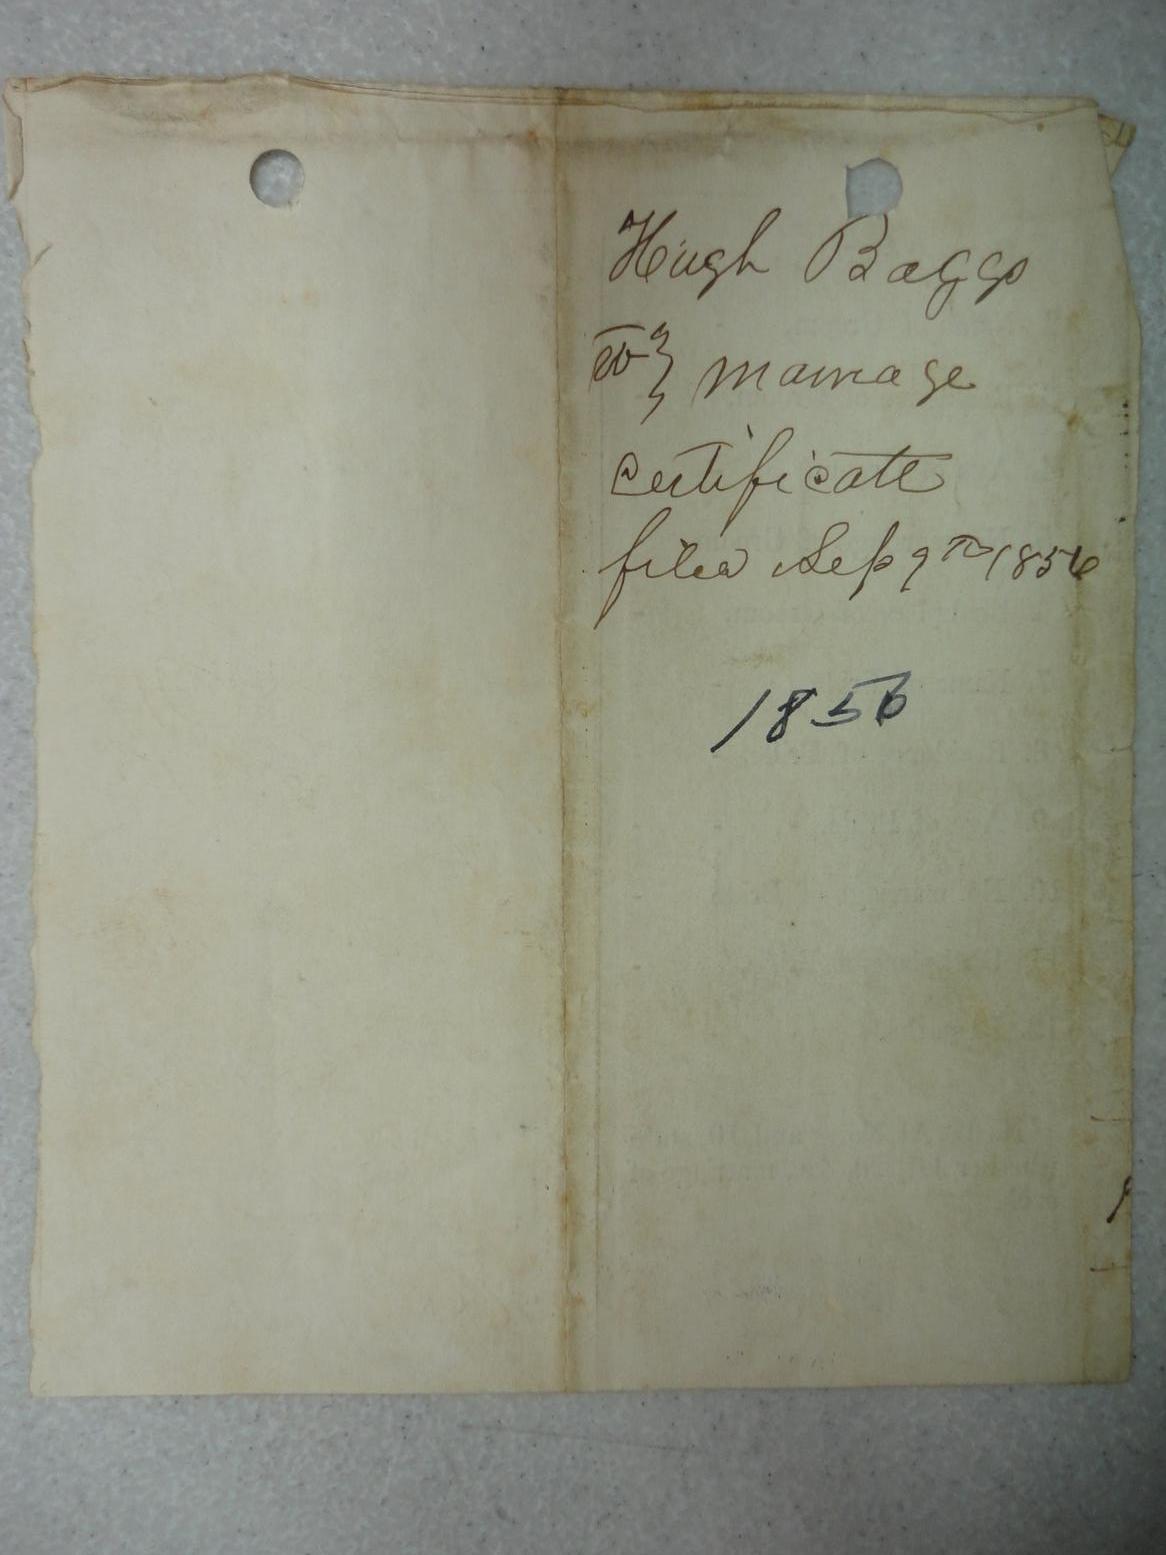 Hugh Baggs
to } marriage
certificate
filed Sep 9th 1856
1856